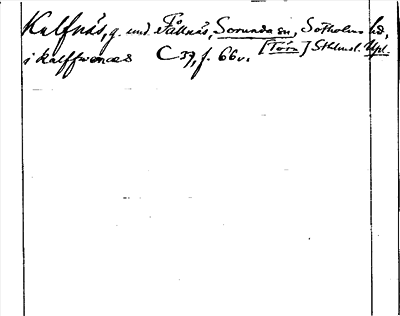 Kalfnäs, g. und. Fållnäs, Sorunda sn, Sotholms hd,
i Kalffwenæs C 37, f. 66v. [Torn] Sthlmsl. Upl.